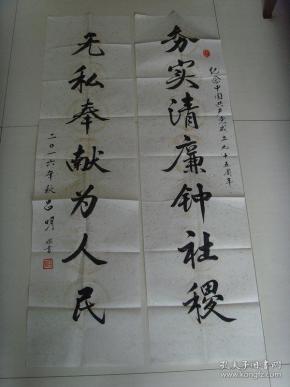 纪念中国共产党成立九十五周年
务实清廉钟社稷
无私奉献为人民
二〇一六年秋吕明